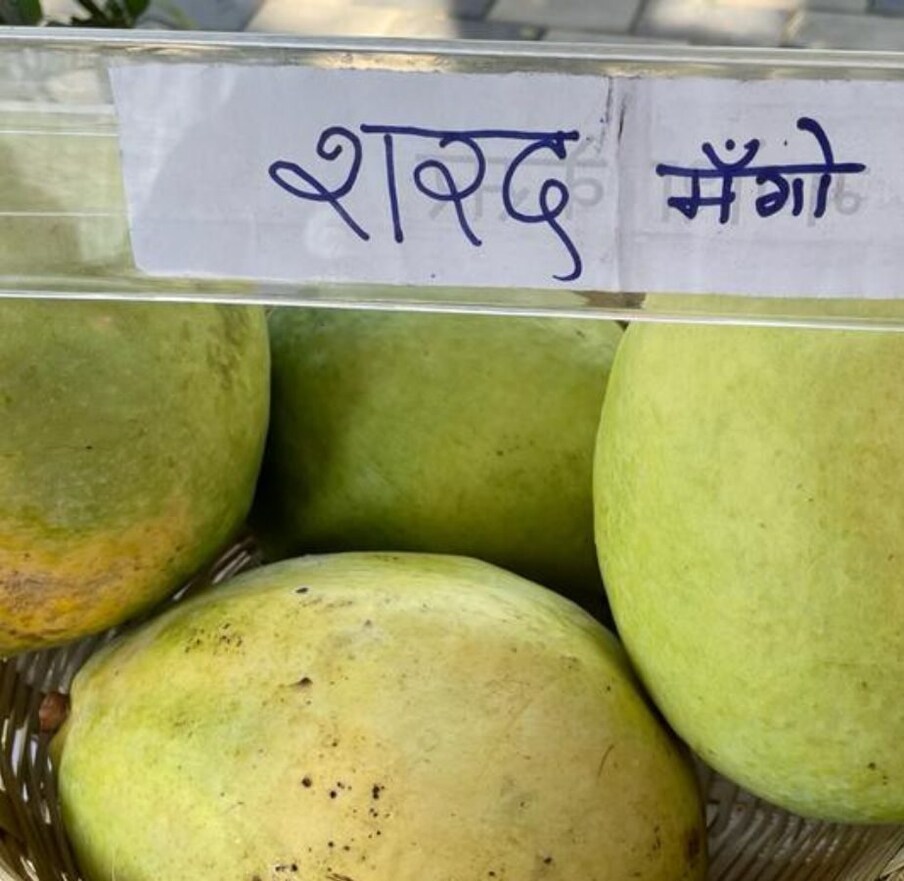 शरद मँगो